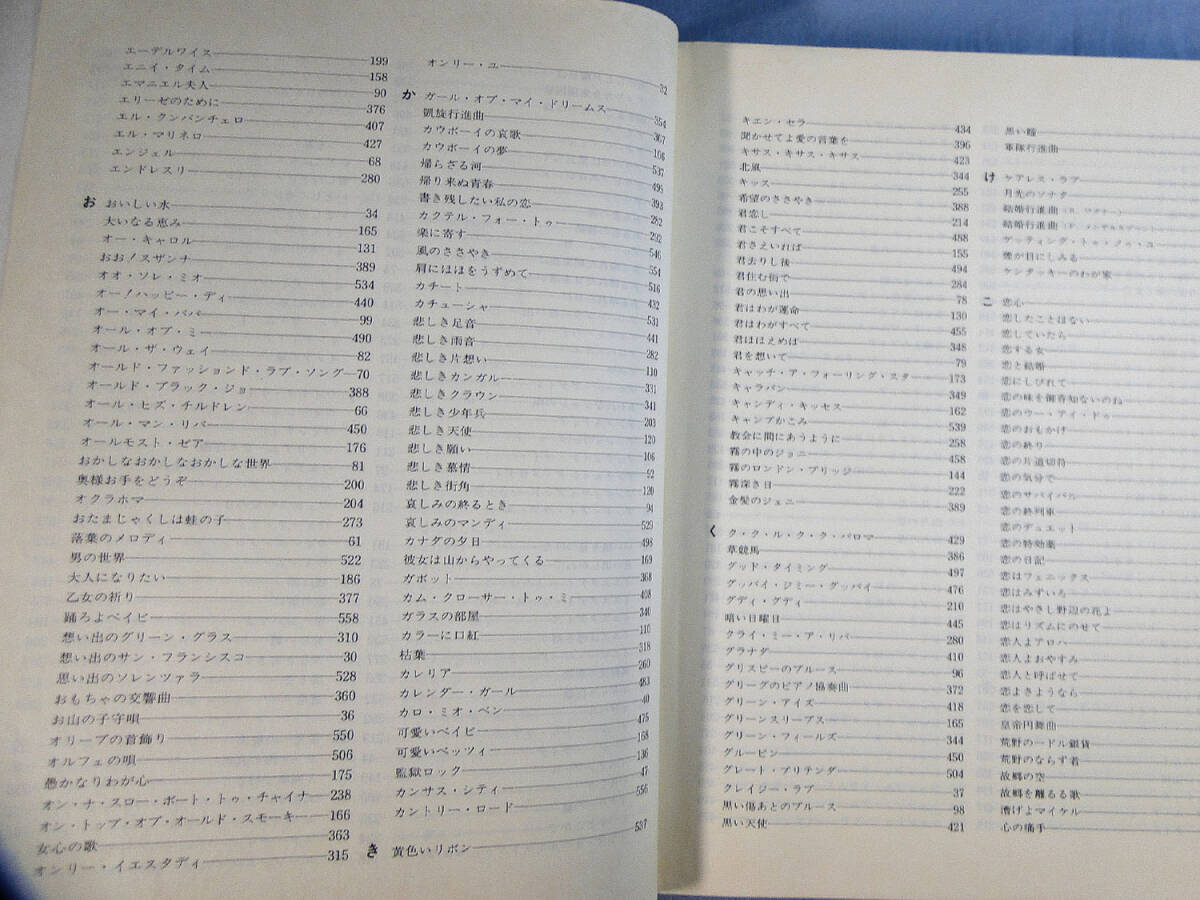 エーデルワイス 199
エニイ・タイム 158
エマニエル夫人 90
エリーゼのために 376
エル・クンバンチェロ 407
エル・マリネロ 427
エンジェル 68
エンドレスリー 280
お おいしい水 34
大いなる恵み 165
オー・キャロル 131
おお!スザンナ 389
オオ・ソレ・ミオ 534
オー!ハッピー・ディ 440
オー・マイ・パパ 99
オール・オブ・ミー 490
オール・ザ・ウェイ 82
オールド・ファッションド・ラブ・ソング 70
オールド・ブラック・ジョー 388
オール・ヒズ・チルドレン 66
オール・マン・リバー 450
オールモスト・ゼア 176
おかしなおかしなおかしな世界 81
奥様お手をどうぞ 200
オクラホマ 204
おたまじゃくしは蛙の子 273
落葉のメロディ 61
男の世界 522
大人になりたい 186
乙女の祈り 377
踊ろよベイビー 558
想い出のグリーン・グラス 310
想い出のサン・フランシスコ 30
思い出のソレンツァラ 528
おもちゃの交響曲 360
お山の子守唄 36
オリーブの首飾り 550
オルフェの唄 506
愚かなりわが心 175
オン・ナ・スロー・ボート・トゥ・チャイナ 238
オン・トップ・オブ・オールド・スモーキー 166
女心の歌 363
オンリー・イエスタディ 315
オンリー・ユー 32
か ガール・オブ・マイ・ドリームス 354
凱旋行進曲 367
カウボーイの哀歌
カウボーイの夢 166
帰らざる河 537
帰り来ぬ青春 495
書き残したい私の恋 393
カクテル・フォー・トゥー 282
楽に寄す 292
風のささやき 546
肩にほほをうずめて 554
カチート 516
カチューシャ 432
悲しき足音 531
悲しき雨音 441
悲しき片想い 282
悲しきカンガルー 110
悲しきクラウン 331
悲しき少年兵 341
悲しき天使 203
悲しき願い 120
悲しき慕情 106
悲しき街角 92
哀しみの終るとき 120
哀しみのマンディ 94
カナダの夕日 529
彼女は山からやってくる 498
ガボット 169
カム・クローサー・トゥ・ミー 368
ガラスの部屋 408
カラーに口紅 340
枯葉 110
カレリア 318
カレンダー・ガール 260
カロ・ミオ・ベン 483
可愛いベイビー 40
可愛いベッツィー 475
監獄ロック 168
カンサス・シティ 136
カントリー・ロード 47
556
き 黄色いリボン 537
キエン・セラ 434
聞かせてよ愛の言葉を 396
キサス・キサス・キサス 423
北風 344
キッス 255
希望のささやき 388
君恋し 214
君こそすべて 488
君さえいれば 155
君去りし後 494
君住む街で 284
君の思い出 78
君はわが運命 130
君はわがすべて 455
君ほほえめば 348
君を想いて 79
キャッチ・ア・フォーリング・スター 173
キャラバン 349
キャンディ・キッセス 162
キャンプかこみ 539
教会に間にあうように 258
霧の中のジョニー 458
霧のロンドン・ブリッジ 144
霧深き日 222
金髪のジェニー 389
く ク・ク・ル・ク・ク・パロマ 429
草競馬 386
グッド・タイミング 497
グッバイ・ジミー・グッバイ 476
グディ・グディ 210
暗い日曜日 445
クライ・ミー・ア・リバー 280
グラナダ 410
グリスビーのブルース 96
グリーグのピアノ協奏曲 372
グリーン・アイズ 418
グリーンスリーブス 165
グリーン・フィールズ 344
グルービン 450
グレート・プリテンダー 504
クレイジー・ラブ 37
黒い傷あとのブルース 98
黒い天使 421
黒い瞳
軍隊行進曲
け ケアレス・ラブ
月光のソナタ
結婚行進曲(R. ワグナー)
結婚行進曲(F. メンデルスゾーン)
ゲッティング・トゥ・ノウ・ユー
煙が目にしみる
ケンタッキーのわが家
こ 恋心
恋したことはない
恋していたら
恋する女
恋と結婚
恋にしびれて
恋の味を御存知ないのね
恋のウー・アイ・ドゥ
恋のおもかげ
恋の終り
恋の片道切符
恋の気分で
恋のサバイバル
恋の終列車
恋のデュエット
恋の特効薬
恋の日記
恋はフェニックス
恋はみずいろ
恋はやさし野辺の花よ
恋はリズムにのせて
恋人よアロハ
恋人よおやすみ
恋人と呼ばせて
恋よさようなら
恋を恋して
皇帝円舞曲
荒野の一ドル銀貨
荒野のならず者
故郷の空
故郷を離るる歌
漕げよマイケル
心の痛手